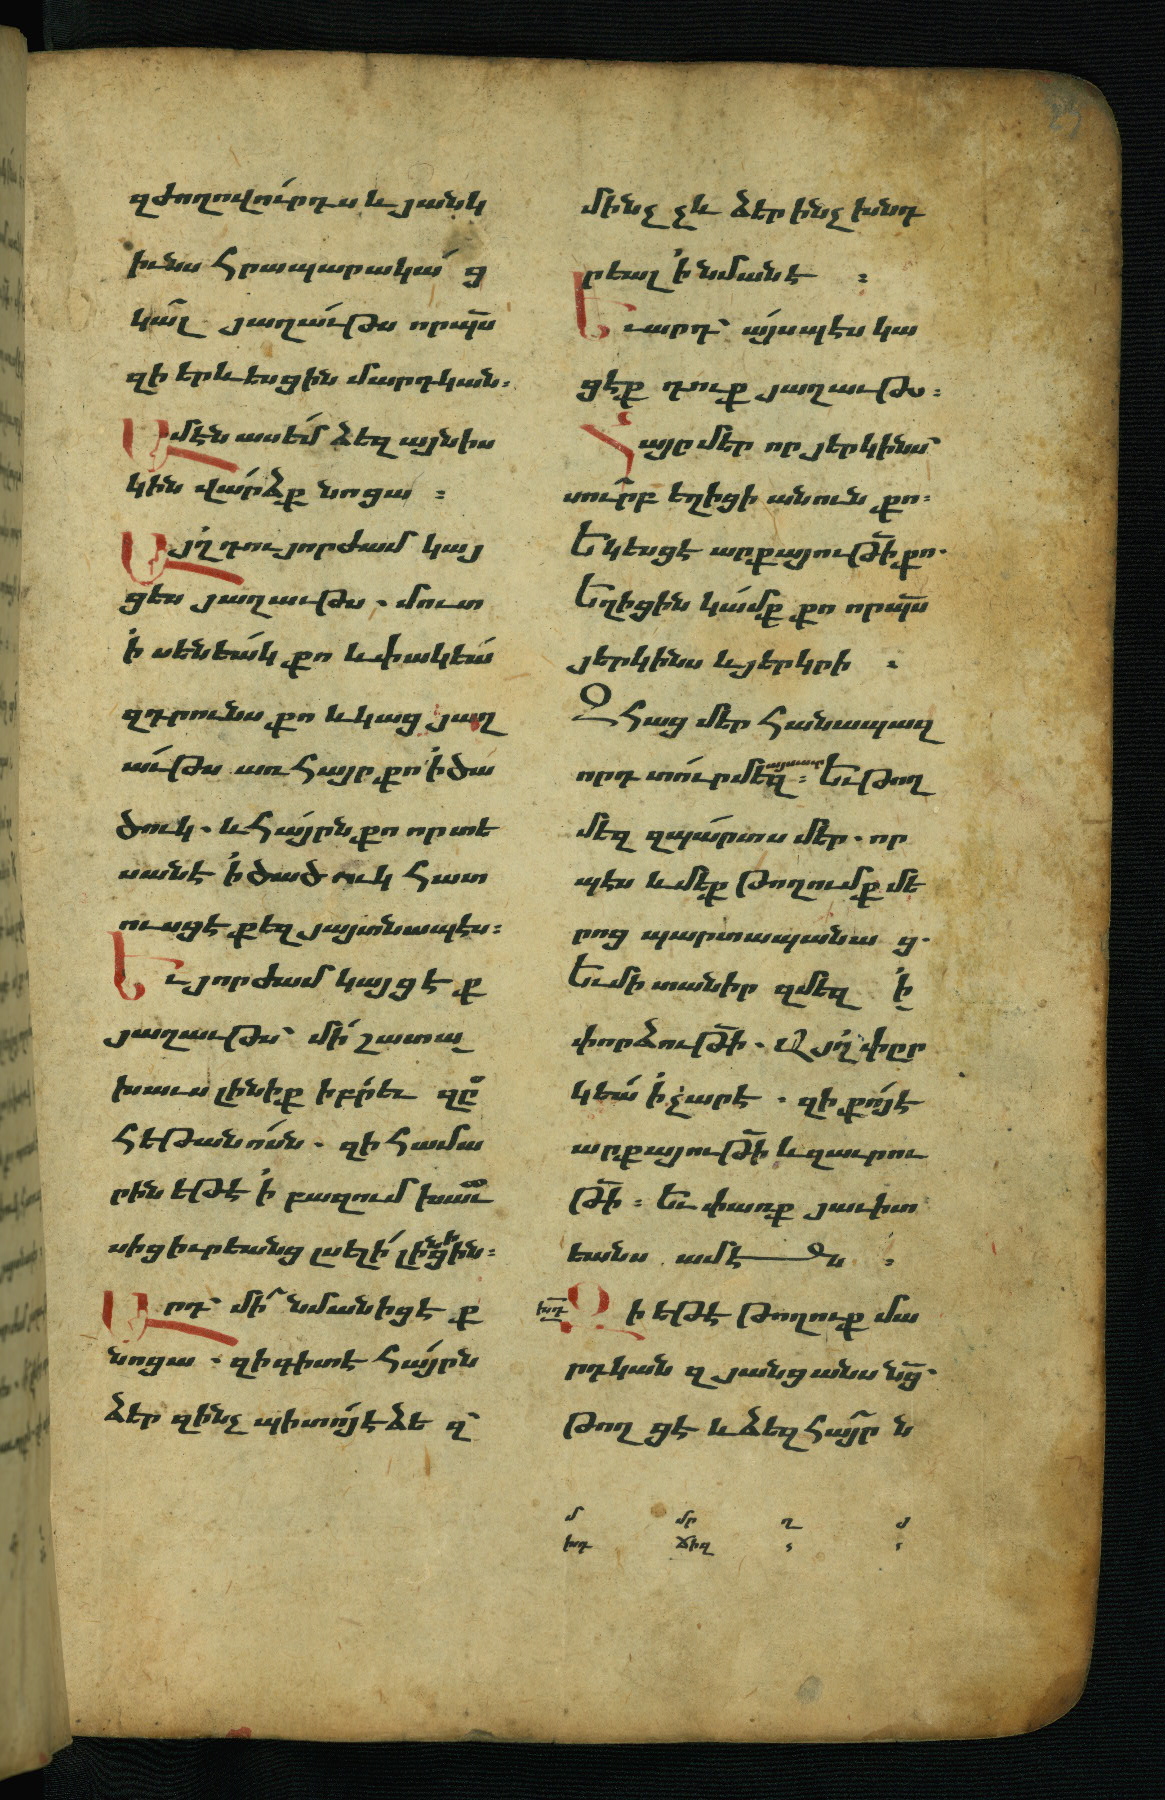 զժողովուրդս և յանկ
իւնս հրապարակաց
կալ յաղաւթս որպս
զի երևեսցին մարդկան։
Ամէն ասեմ ձեզ այնիս
կին վարձք նոցա։
Այղ դու յորժամ կայ
ցես յաղաւթս. մուտ
ի սենեակ քո և փակեա
զդրունս քո և կաց յաղ
աւթս առ հայր քո ի ծա
ծուկ. և հայրն քո որ տե
սանէ ի ծածուկ հատ
ուսցէ քեզ յայտնապէս։
Եւ յորժամ կայցէք
յաղաւթս՝ մի շատա
խաւս լինիք իբրեւ զը
հեթանոսն. զի համա
րին եթէ ի բազում խաւ
սից իւրեանց լսելի լինիցին։
Արդ՝ մի նմանիցէք
նոցա. զի գիտէ հայրն
ձեր զինչ պիտոյ է ձեզ՝
մինչ չև ձեր ինչ խնդ
րեալ ի նմանէ։
Եւ արդ՝ այսպէս կա
ցէք դուք յաղաւթս։
Հայր մեր որ յերկինս՝
սուրբ եղիցի անուն քո։
Եկեսցէ արքայութի քո.
Եղիցին կամք քո որպս
յերկինս և յերկրի։
Զհաց մեր հանապազ
որդ տուր մեզ այսաւր։ Եւ թող
մեզ զպարտս մեր. որ
պէս և մեք թողումք մե
րոց պարտապանաց.
Եւ մի տանիր զմեզ ի
փորձութի. Այղ փըր
կեա ի չարէ. զի քոյ է
արքայութի և զաւրու
թի։ Եւ փառք յաւիտ
եանս ամէն։
խդ Զի եթէ թողուք մա
րդկան զյանցանս նց՝
թողցէ և ձեզ հայրն
մ մր ղ յ
խդ ճիզ